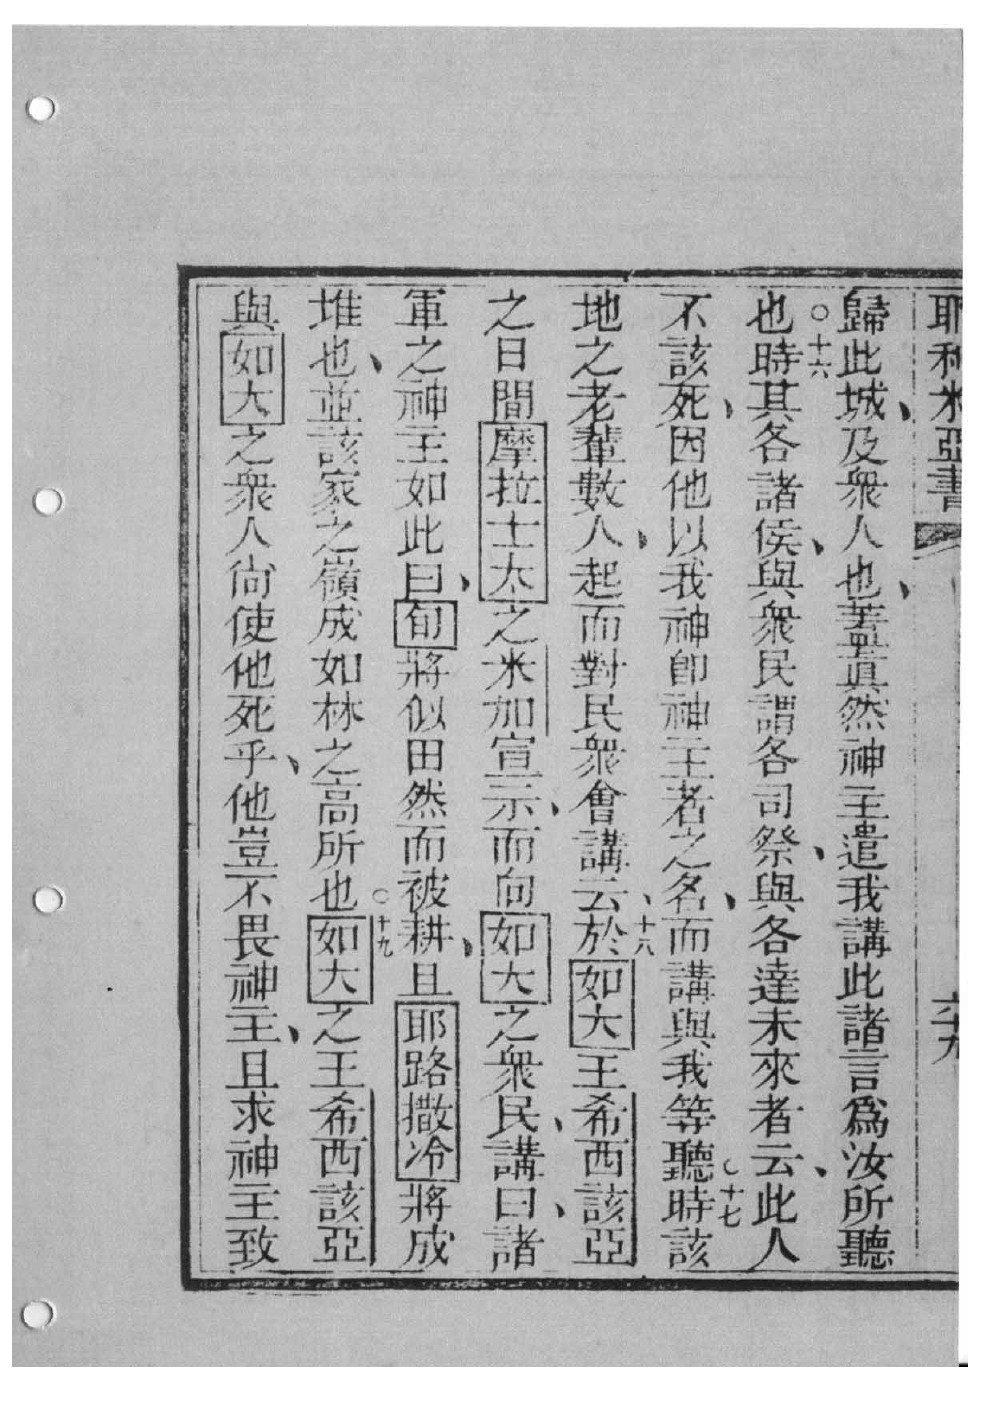 耶利米亞書 六十九
歸此城、及衆人也、蓋眞然神主遣我講此諸言爲汝所聽
也○十六時其各諸侯、與衆民謂各司祭、與各達未來者云、此人
不該死、因他以我神卽神主者之名、而講與我等聽○十七時該
地之老輩數人、起而對民衆會講云、十八於如大王希西該亞
之日間摩拉士太之米加宣示、而向如大之衆民、講曰、諸
軍之神主如此曰、旬將似田然而被耕、且耶路撒冷將成
堆也、並該家之嶺成如林之高所也○十九如大之王希西該亞
與如大之衆人尙使他死乎、他豈不畏神主、且求神主致